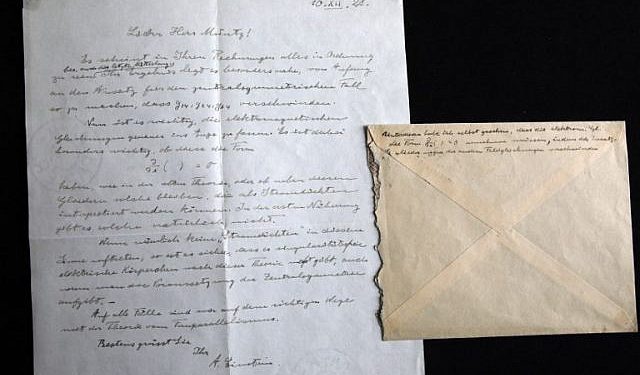 10.XII.28.
Lieber Herr Müntz!
Es scheint in Ihren Rechnungen alles in Ordnung
zu sein. Ihr Ergebnis legt es besonders nahe, von Anfang
an den Ansatz für den zentralsymmetrischen Fall
so zu machen, dass g14, g24, g34 verschwinden.
Nun ist es wichtig, die elektromagnetischen
Gleichungen genauer ins Auge zu fassen. Es ist dabei
besonders wichtig, ob diese die Form
( ) = 0
haben, wie in der alten Theorie, oder ob neben diesen
Gliedern solche bleiben, die als Stromdichten
interpretiert werden können. In der ersten Näherung
gibt es solche natürlich nicht.
Wenn nämlich keine "Stromdichten" in diesem
Sinne auftreten, so ist es sicher, dass es singularitätsfreie
elektrische Körperchen nach dieser Theorie nicht gibt, auch
wenn man die Voraussetzung der Zentralsymmetrie
aufgibt. —
Auf alle Fälle sind wir auf dem richtigen Wege
mit der Theorie vom Fernparallelismus.
Bestens grüsst Sie
Ihr
A. Einstein
habe ich selbst gesehen, dass die elektrom. Gl.
die Form ( ) = 0 annehmen müssen, indem die
wegen der neuen Feldgleichungen verschwinden